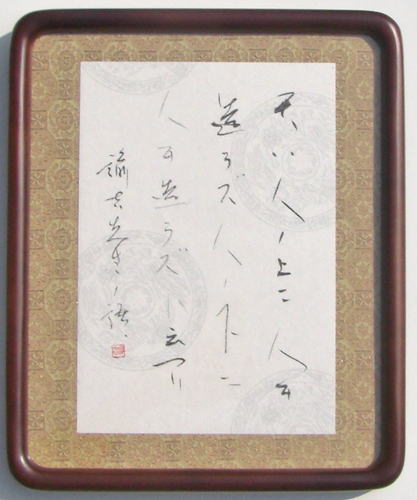 天ハ人ノ上ニ人ヲ
造ラズ人ノ下ニ
人ヲ造ラズト云ヘリ
諭吉先生ノ語